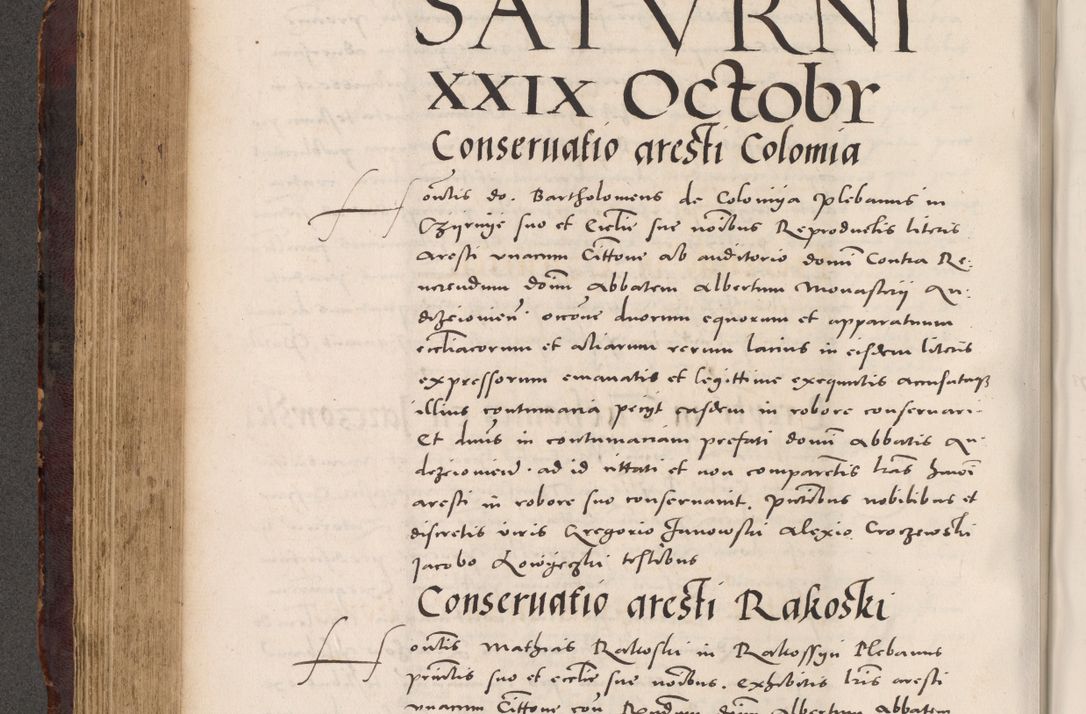 SATVRNI
XXIX Octobr
Conseruatio aresti Colomia
Hontis do. Bartholomeus de Colomya plebanus in
suo et Ecclie sue noibus Reproductis literis
aresti vnacum Cittone ab auditorio domi Contra Re-
uerendum doim Abbatem Albertum Monasterij An-
dizeiouien. duorum equorum et apparatuum
et aliarum rerum lacius in eisdem literis
expressorum emanatis et legittime exequutis accusataqz
illius contumacia petyt easdem in robore conseruari.
Et dnus in contumaciam prefati domi Abbatis An-
dizeiouien. ad id cittati et non comparetis lras
aresti in robore suo conseruauit. pntibus nobilibus et
discretis viris Gregorio Janowski Alexio Croczewski
Jacobo testibus
Conseruatio aresti Rakoski
Hontis Mathias Rakoski in Rakossyn Plebanus
suo et ecclie sue noibus. exhibitis lris aresti
vnacum Cittone con Rndum doim Albertum Abbatem